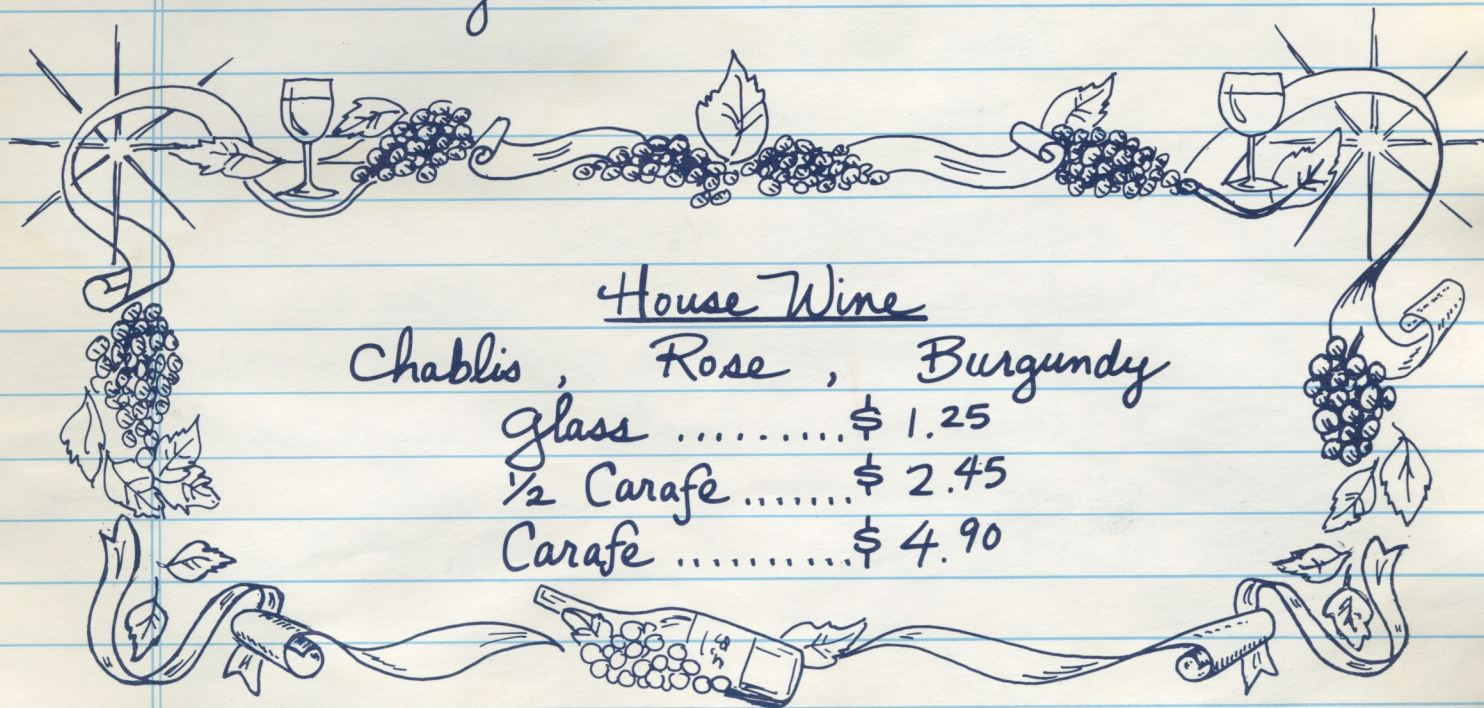 House Wine
Chablis, Rose, Burgundy
Glass ..........$ 1.25
1/2 Carafe .......$ 2.45
Carafe ..........$ 4.90